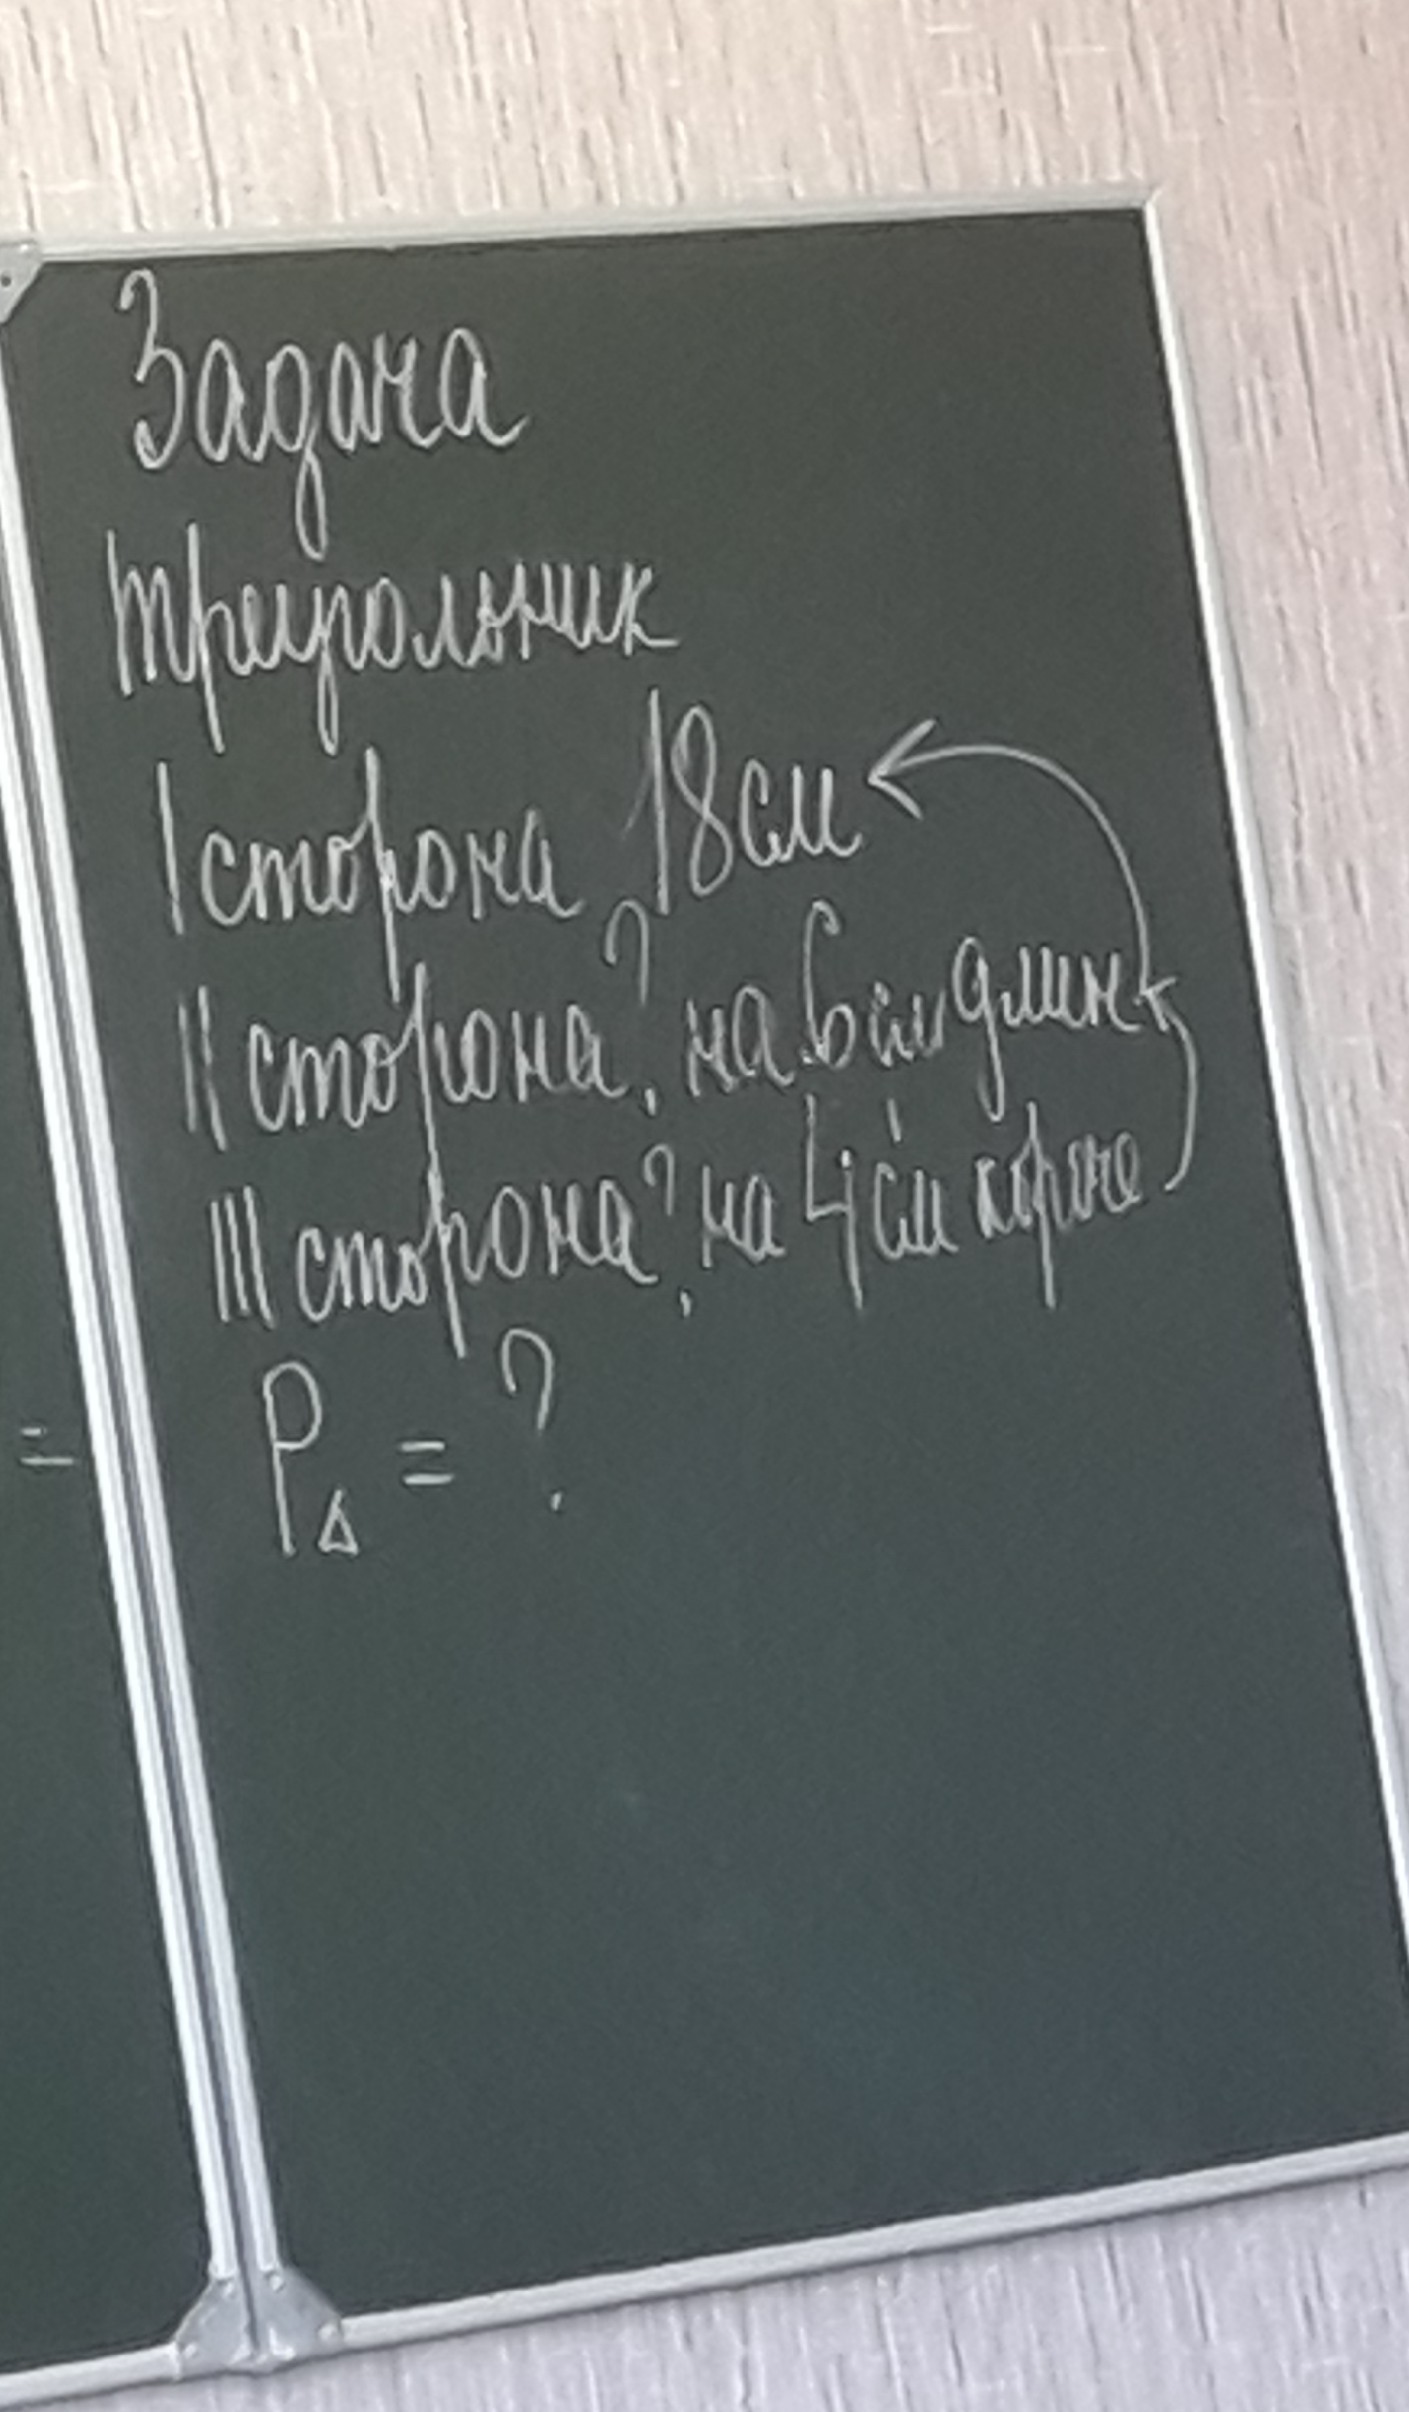 Задача
треугольник
I сторона 18 см
II сторона ?, на 6 см длин
III сторона ?, на 4 см короче
P△ = ?
=